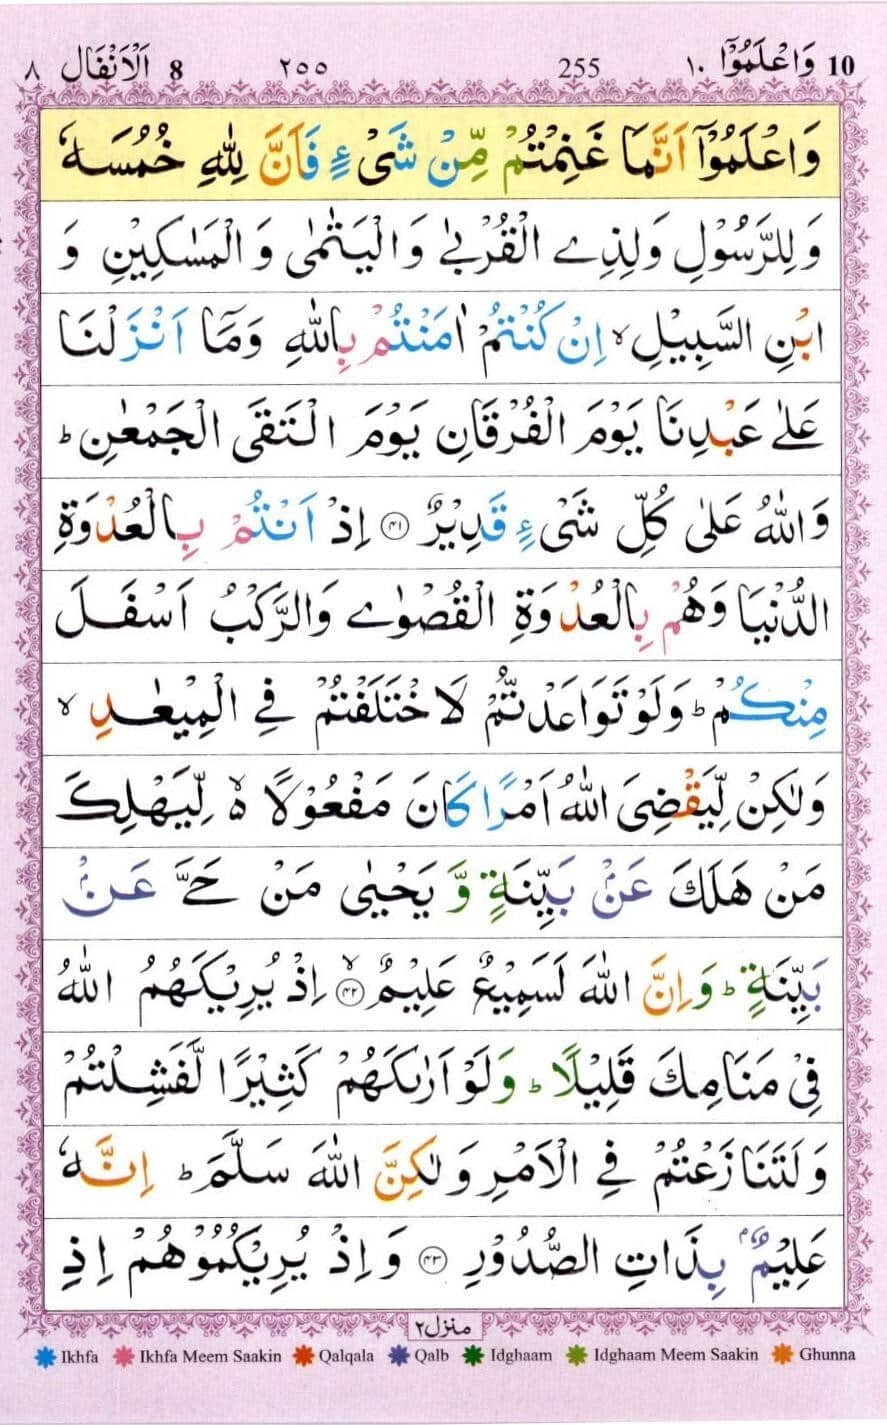 10 وَاعْلَمُوْٓا ١٠ 255 ٢٥٥ 8 اَلْاَنْفَال ٨
وَاعْلَمُوْٓا اَنَّمَا غَنِمْتُمْ مِّنْ شَیْءٍ فَاَنَّ لِلّٰهِ خُمُسَهٗ
وَلِلرَّسُوْلِ وَلِذِی الْقُرْبٰی وَالْیَتٰمٰی وَالْمَسٰکِیْنِ وَ
ابْنِ السَّبِیْلِ ۙ اِنْ کُنْتُمْ اٰمَنْتُمْ بِاللّٰهِ وَمَآ اَنْزَلْنَا
عَلٰی عَبْدِنَا یَوْمَ الْفُرْقَانِ یَوْمَ الْتَقَی الْجَمْعٰنِ ؕ
وَاللّٰهُ عَلٰی کُلِّ شَیْءٍ قَدِیْرٌ ﴿۴۱﴾ اِذْ اَنْتُمْ بِالْعُدْوَةِ
الدُّنْیَا وَهُمْ بِالْعُدْوَةِ الْقُصْوٰی وَالرَّکْبُ اَسْفَلَ
مِنْکُمْ ؕ وَلَوْ تَوَاعَدْتُّمْ لَاخْتَلَفْتُمْ فِی الْمِیْعٰدِ ۙ
وَلٰکِنْ لِّیَقْضِیَ اللّٰهُ اَمْرًا کَانَ مَفْعُوْلًا ۙ۬ لِّیَهْلِکَ
مَنْ هَلَکَ عَنْۢ بَیِّنَةٍ وَّ یَحْیٰی مَنْ حَیَّ عَنْۢ
بَیِّنَةٍ ؕ وَاِنَّ اللّٰهَ لَسَمِیْعٌ عَلِیْمٌ ۙ﴿۴۲﴾ اِذْ یُرِیْکَهُمُ اللّٰهُ
فِیْ مَنَامِکَ قَلِیْلًا ؕ وَلَوْ اَرٰىکَهُمْ کَثِیْرًا لَّفَشِلْتُمْ
وَلَتَنَازَعْتُمْ فِی الْاَمْرِ وَلٰکِنَّ اللّٰهَ سَلَّمَ ؕ اِنَّهٗ
عَلِیْمٌۢ بِذَاتِ الصُّدُوْرِ ﴿۴۳﴾ وَاِذْ یُرِیْکُمُوْهُمْ اِذِ
منزل ٢
Ikhfa Ikhfa Meem Saakin Qalqala Qalb Idghaam Idghaam Meem Saakin Ghunna